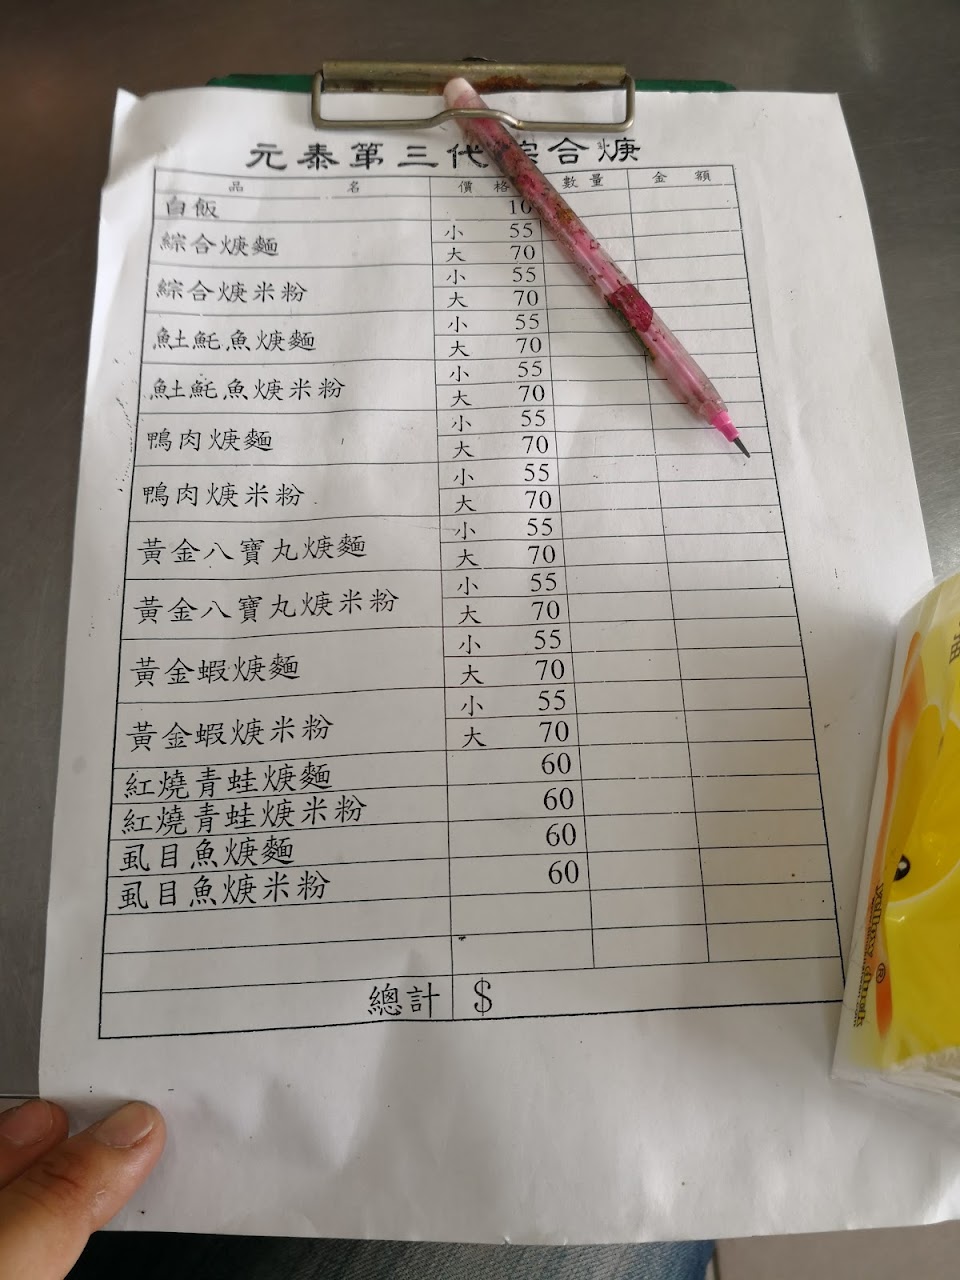 元泰第三代綜合焿
品名 價格 數量 金額
白飯 10
綜合焿麵 小 55
大 70
綜合焿米粉 小 55
大 70
魠魠魚焿麵 小 55
大 70
魠魠魚焿米粉 小 55
大 70
鴨肉焿麵 小 55
大 70
鴨肉焿米粉 小 55
大 70
黃金八寶丸焿麵 小 55
大 70
黃金八寶丸焿米粉 小 55
大 70
黃金蝦焿麵 小 55
大 70
黃金蝦焿米粉 小 55
大 70
紅燒青蛙焿麵 60
紅燒青蛙焿米粉 60
虱目魚焿麵 60
虱目魚焿米粉 60
總計 $